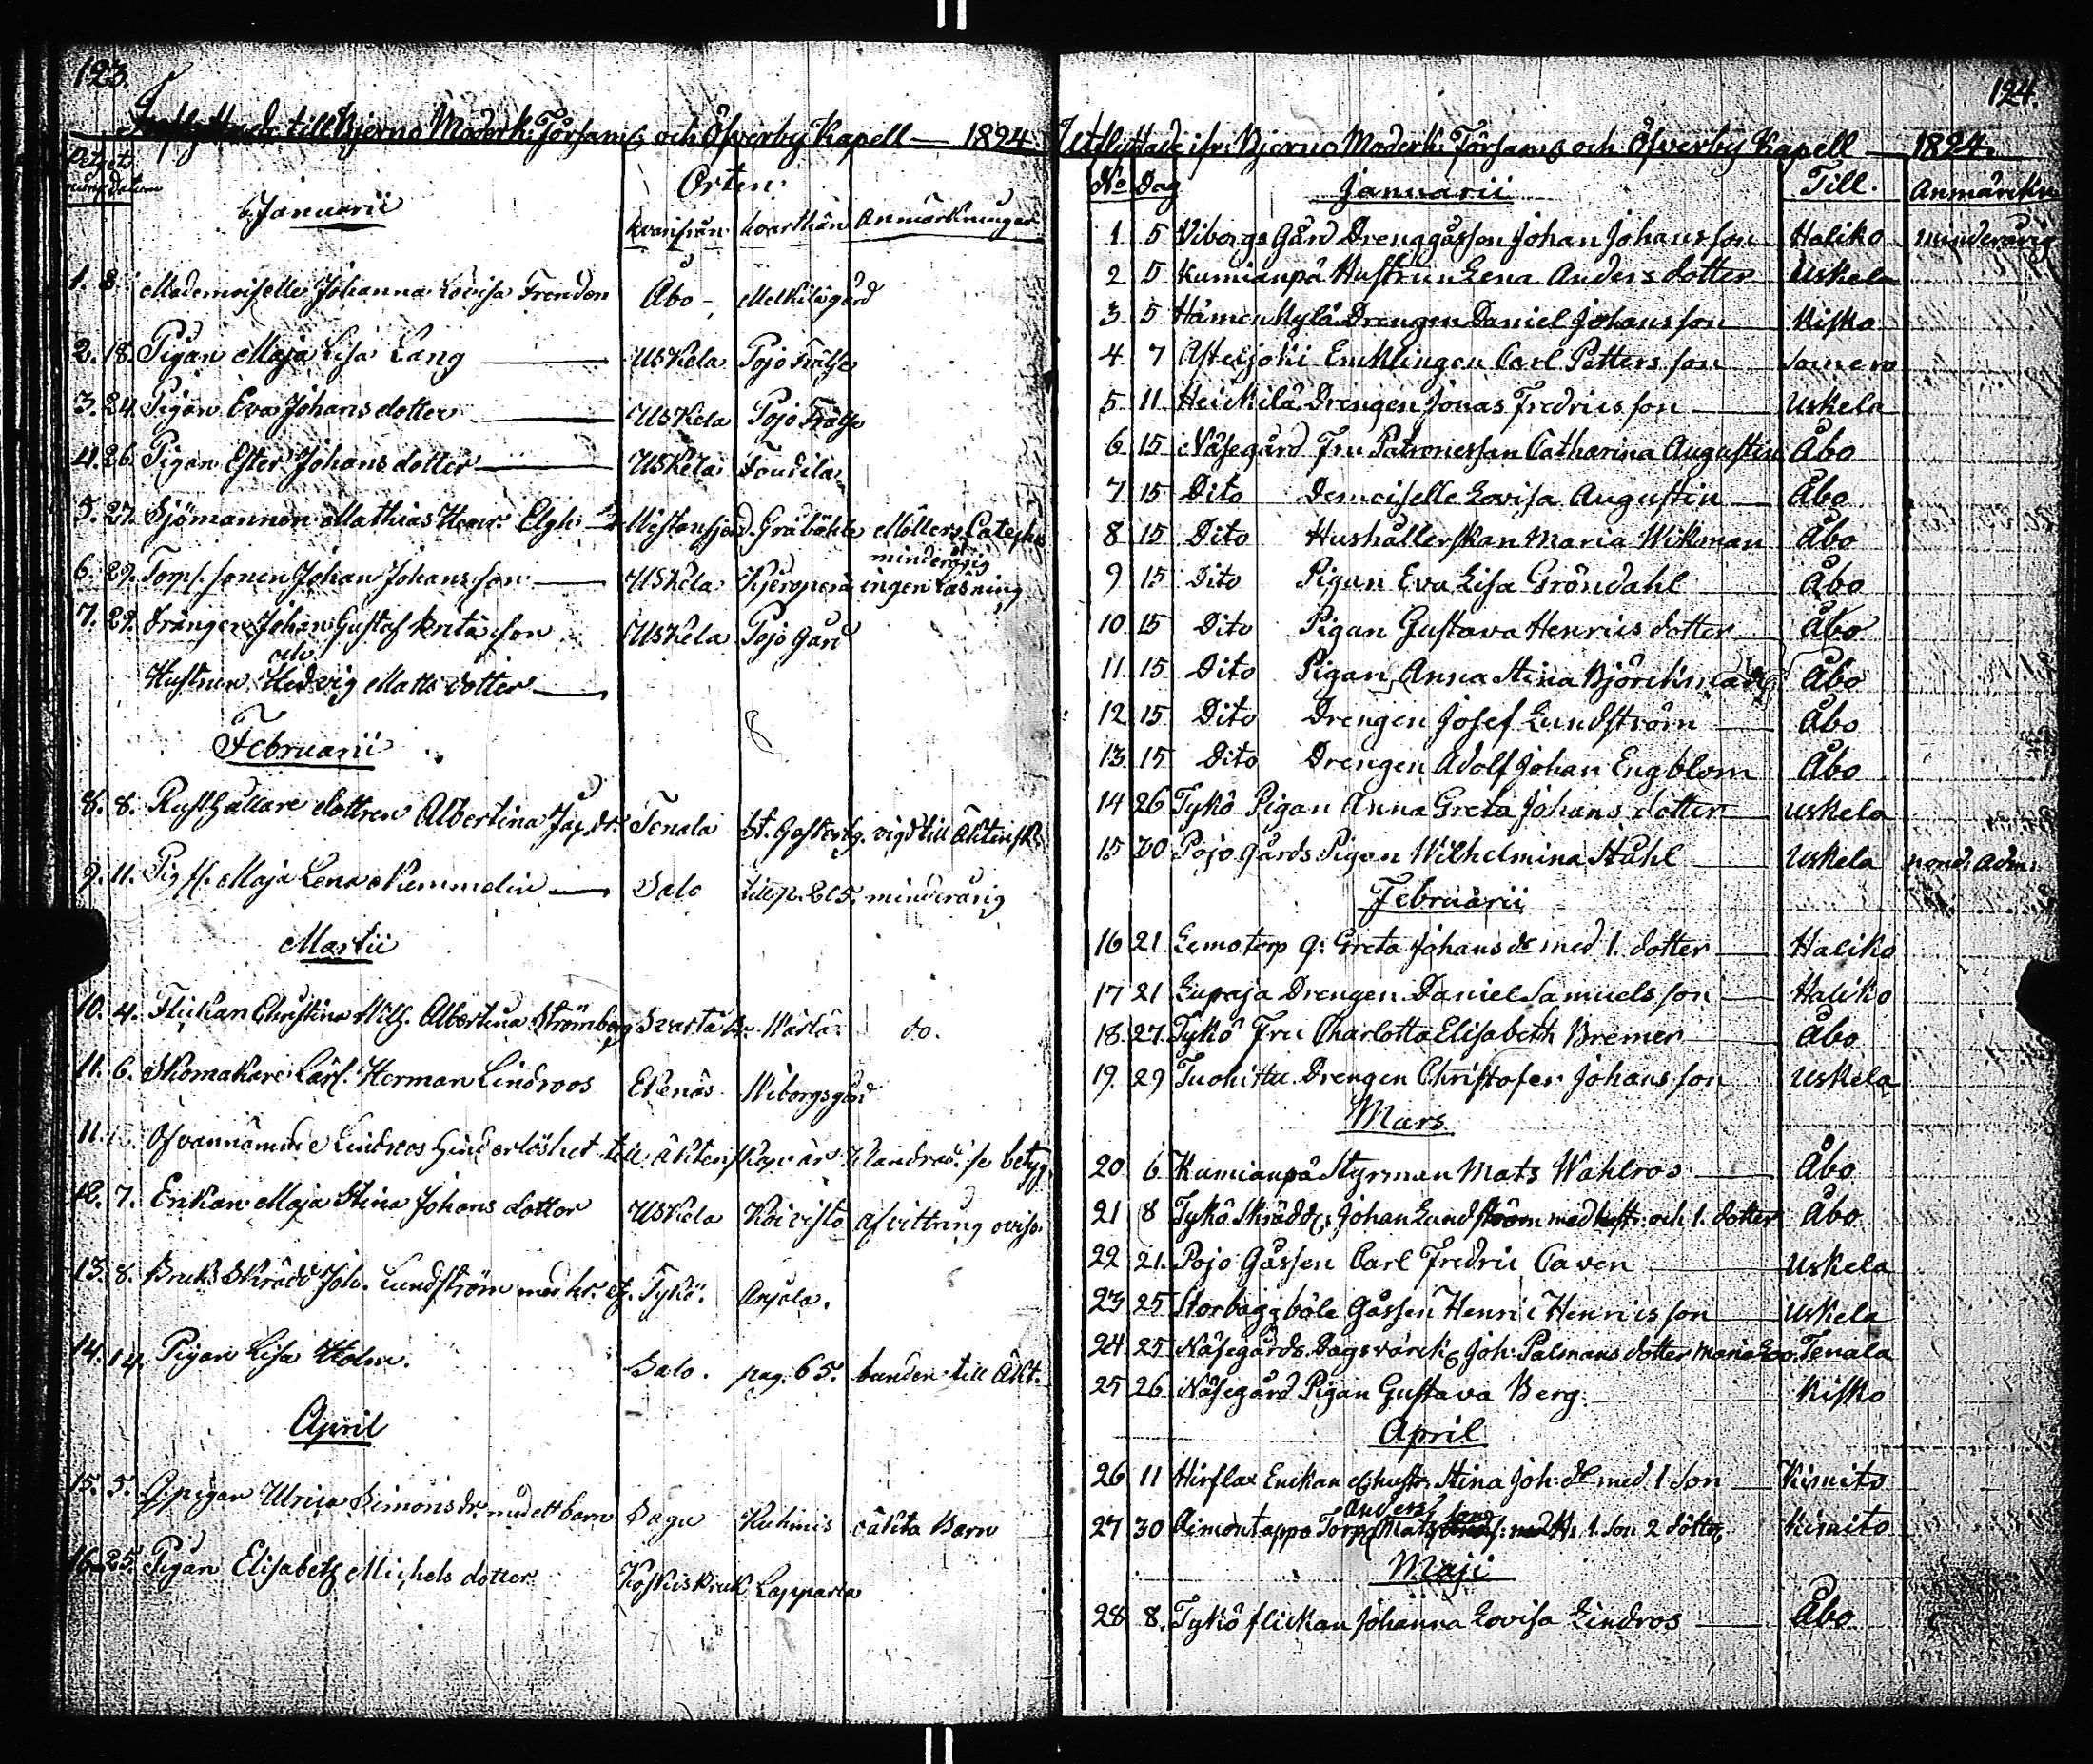 123.
Inflyttade till Bjerno Moderk: Församl. och Öfverby Kapell — 1824
Betygets
datum
Orten
Januarii
hvarifrån hvarthän Anmärkningar
1. 8. Mademoiselle Johanna Lovisa Trendon Åbo Melkilägård
2. 18. Pigan Maja Lisa Lang Uskela Pojo Frälse
3. 24. Pigan Eva Johans dotter Uskela Pojo Frälse
4. 26. Pigan Ester Johans dotter Uskela Toudila
5. 27. Sjömannen Mathias Henr: Elgh Westansfjerd. Gräböhle Möllers Cateches
minderårig
6. 29. Torp. sonen Johan Johansson Uskela Kjeropera ingen läsning
7. 29. Drängen Johan Gustaf Knutsson Uskela Pojo Gård
och
Hustrun Hedvig Matts dotter
8
Februarii
8. 8. Rusthållare dottren Albertina Jac. dr. Tenala vigd till Äktensk.
9. 11. Pig fl. Maja Lena Nummelin Salo minderårig
Martii
10. 4. Flickan Christina Wilh. Albertina Strömberg Svartå Br. Wårtå. do.
11. 6. Skomakare Lärl. Herman Lindroos Ekenäs Wiborgsgård
11. Ofvannämnde Lindroos hinderlöshet till äktenskap är betyg.
12. 7. Enkan Maja Stina Johans dotter Uskela Koivisto afvittring oviss
13. 8. Bruks Skrädd. Joh. Lundström med hr. Tykö. Anjala.
14. 14. Pigan Lisa Holm. Salo. pag. 65. bunden till Äkt.
April
15. 5. Qpigan Ulrica Simons dr. med ett barn Sagu Kuhmis oäkta Barn
16. 25. Pigan Elisabeth Michels dotter Koskis Bruk Lapparla
124.
Utflyttade ifr: Bjerno Moderk: Församl och Öfverby Kapell 1824.
No Dag Januarii Till. Anmärckn
1 5 Viborgs Gård Drenggåssen Johan Johansson Haliko minderårig
2 5 Kumianpä Hustrun Lena Anders dotter Uskela
3 5 Hämenkylä Drengen Daniel Johansson Kisko
4 7 Asteljoki Enklingen Carl Pettersson Somero
5 11 Heickilä Drengen Jonas Fredricsson Uskela
6 15 Näsegård Fru Patronessan Catharina Augustin Åbo
7 15 Dito Demoiselle Lovisa Augustin Åbo
8 15 Dito Hushållerskan Maria Wikman Åbo
9 15 Dito Pigan Eva Lisa Gröndahl Åbo
10 15 Dito Pigan Gustava Henrics dotter Åbo
11 15 Dito Pigan Anna Stina Björckmad Åbo
12 15 Dito Drengen Josef Lundström Åbo
13 15 Dito Drengen Adolf Johan Engblom Åbo
14 26 Tykö Pigan Anna Greta Johans dotter Uskela
15 20 Pojo Gårds Pigan Wilhelmina Ståhl Uskela nond: adm:
Februarii
16 21 Lemo torp q: Greta Johans dr med 1. dotter Haliko
17 21 Lupaja Drengen Daniel Samuelsson Haliko
18. 27. Tykö Fru Charlotta Elisabeth Bremer Åbo
19. 29 Tuohittu Drengen Christofer Johansson Uskela
Mars
20 6 Kumianpä Styrman Mats Wahlros Åbo
21 8 Tykö Skrädd. Johan Lundström med hustr: och 1. dotter Åbo
22 21. Pojo Gåssen Carl Fredric Caven Uskela
23 25 Storbaggböle Gåssen Henric Henricsson Uskela
24 25 Näsegårds Dagsvärck. Joh: Palmans dotter Maria Eva. Tenala
25 26 Näsegård Pigan Gustava Berg. Kisko
April
26 11 Hirflax Enckan Stina Joh: dr med 1 son Kimito
Anders son
27 30 Aimontappa Torp. Mats 1. Son 2 döttr. Kimito
Maji
28 8. Tykö flickan Johanna Lovisa Lindros Åbo